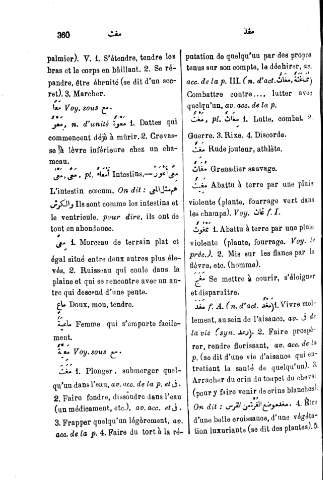 360
مغث
مغد
palmier). V. 1. S'étendre, tendre les
bras et le corps en bâillant. 2. Se ré-
pandre, être ébruité (se dit d'un sec-
ret). 3. Marcher.
Voy. sous مع
n. d'unité 1. Dattes qui
commencent déjà à mûrir. 2. Crevas-
se à lèvre inférieure chez un cha-
meau.
pl. Intestins,—
L'intestin cœcum. On dit :
Ils sont comme les intestins et
le ventricule, pour dire, ils ont de
tout en abondance.
1. Morceau de terrain plat et
égal situé entre deux autres plus éle-
vés. 2. Ruisseau qui coule dans la
plaine et qui se rencontre avec un au-
tre qui descend d'une pente.
Doux, mou, tendre.
Femme qui s'emporte facile-
ment.
Voy. sous مع
1. Plonger, submerger quel-
qu'un dans l'eau, av. acc. de la p. et في.
2. Faire fondre, dissoudre dans l'eau
(un médicament, etc.), av. acc. et في.
3. Frapper quelqu'un légèrement, av.
acc. de la p. 4. Faire du tort à la ré-
putation de quelqu'un par des propos
tenus sur son compte, le déchirer, av.
acc. de la p. III. (n. d'act.
Combattre contre..., lutter avec
quelqu'un, av. acc. de la p.
pl. 1. Lutte, combat. 2.
Guerre. 3. Rixe. 4. Discorde.
Rude jouteur, athlète.
Grenadier sauvage.
Abattu à terre par une pluie
violente (plante, fourrage vert dans
les champs). Voy. f. I.
1. Abattu à terre par une pluie
violente (plante, fourrage. Voy. le
préc.). 2. Mis sur les flancs par la
fièvre, etc. (homme).
Se mettre à courir, s'éloigner
et disparaître.
f. A. (n. d'act. 1. Vivre mol-
lement, au sein de l'aisance, av. في de
la vis (syn. 2. Faire prospé-
rer, rendre florissant, av. acc. de la
p. (se dit d'une vie d'aisance qui en-
tretient la santé de quelqu'un). 3.
Arracher du crin du toupet du cheval
(pour y faire venir de crins blanches).
On dit : 4. Être
d'une belle croissance, d'une végéta-
tion luxuriante (se dit des plantes). 5.